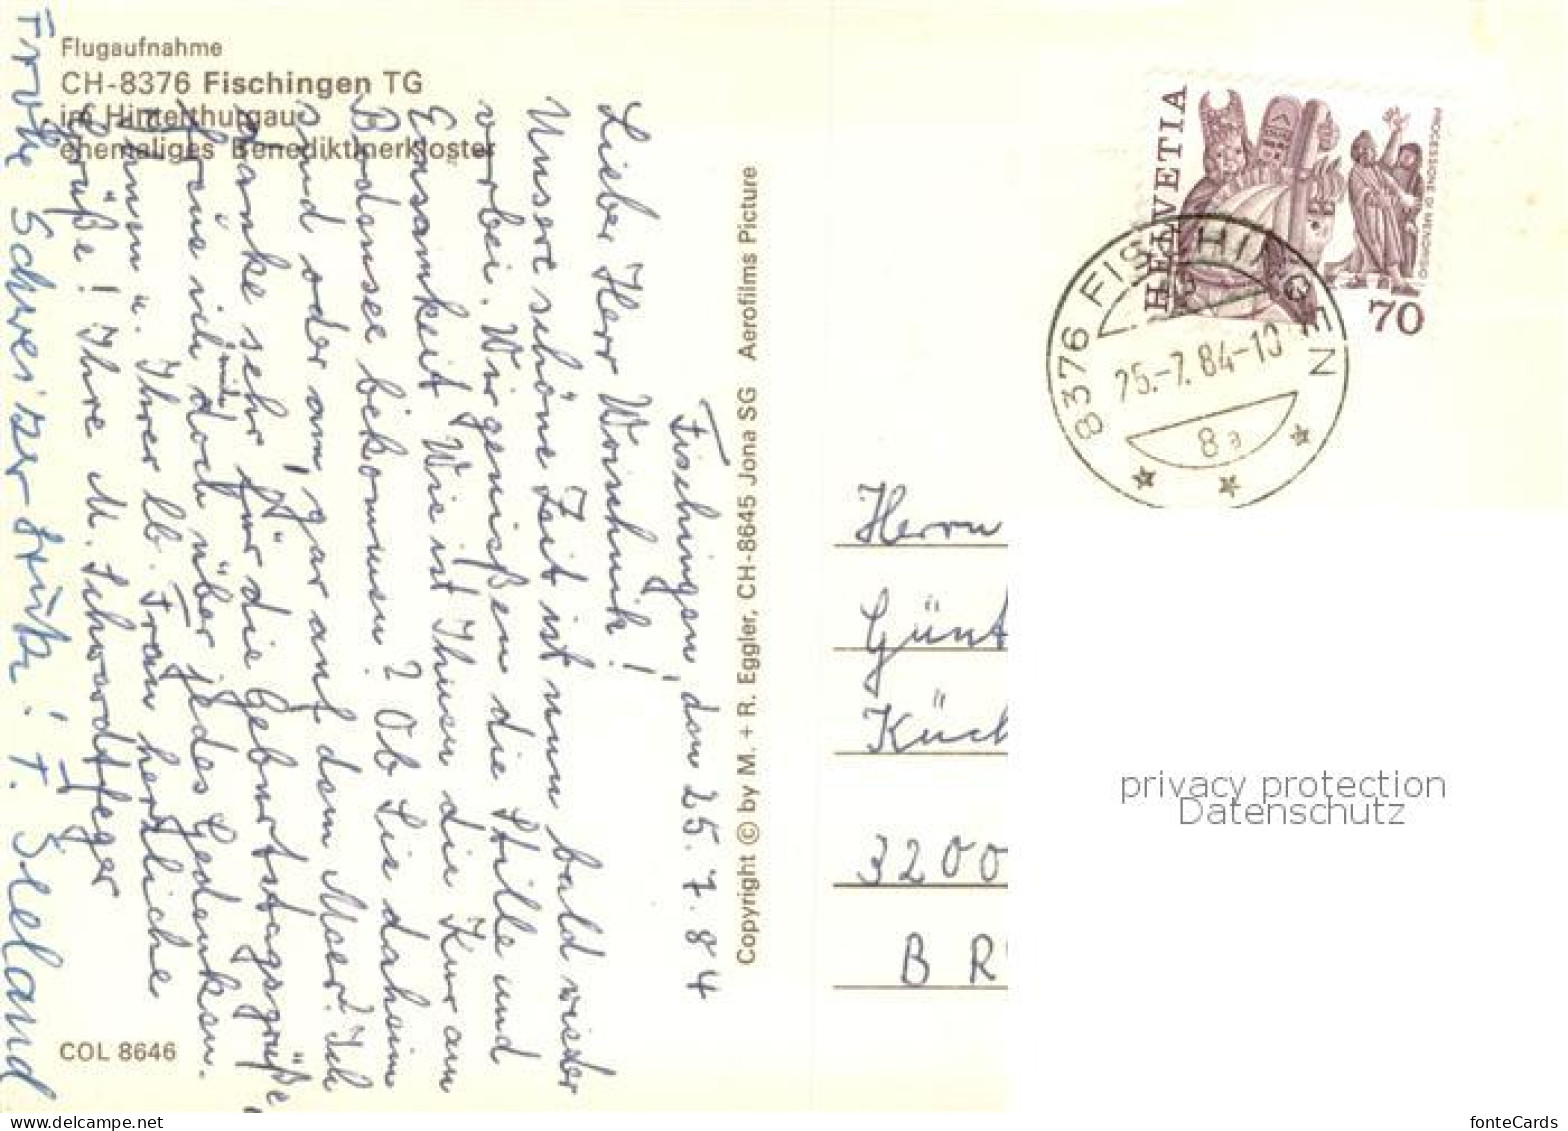 Flugaufnahme
CH-8376 Fischingen TG
im Hinterthurgau
ehemaliges Benediktinerkloster
Fischingen, den 25.7.84
Lieber Herr Worschnik!
Unsere schöne Zeit ist nun bald wieder
vorbei. Wir genießen die Stille und
Einsamkeit. Wie ist Ihnen die Kur am
Bodensee bekommen? Ob Sie daheim
sind oder am, gar auf dem Meer? Ich
danke sehr für die Geburtstagsgrüße,
freue ich mich doch über jedes Gedenken.
Ihnen u. Ihrer lb. Frau herzliche
Grüße! Ihre M. Schwerdtfeger
Frohe Schweizer Grüße! F. Seeland
COL 8646
Copyright © by M. + R. Eggler, CH-8645 Jona SG Aerofilms Picture
HELVETIA
PROCESSIONE DI MENDRISIO
70
8376 FISCHINGEN
25.-7.84-10
8a
Herrn
Günt
Küch
3200
B R
privacy protection
Datenschutz
www.delcampe.net
fonteCards